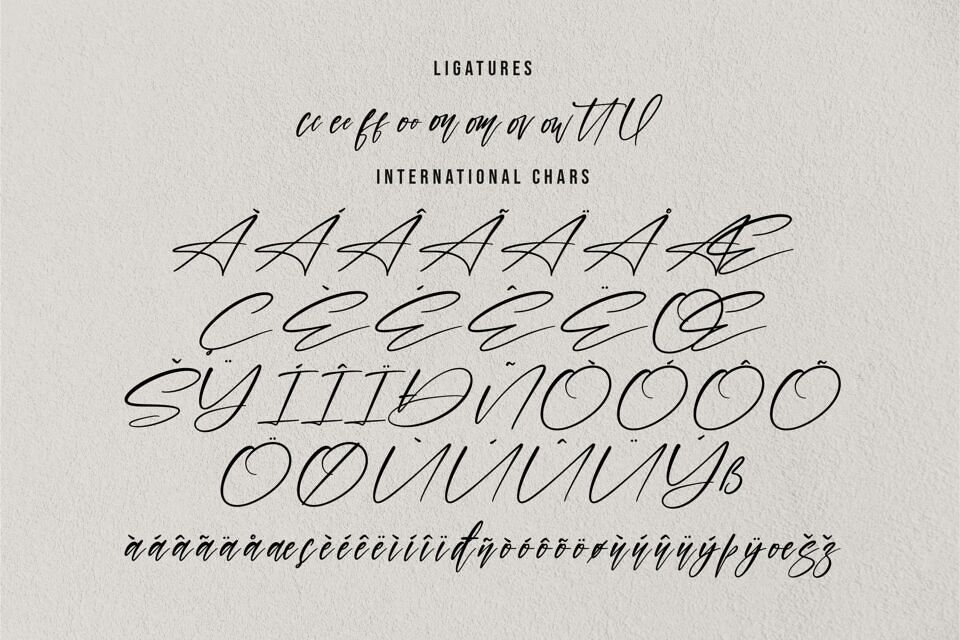 LIGATURES
cc ee ff oo on om ov ow tt ll
INTERNATIONAL CHARS
ÀÁÂÃÄÅÆ
ÇÈÉÊËŒ
ŠŸÍÎÏĐÑÒÓÔÕ
ÖØÙÚÛÜÝß
àáâãäåæçèéêëìíîïđñòóôõöøùúûüýþÿœšž